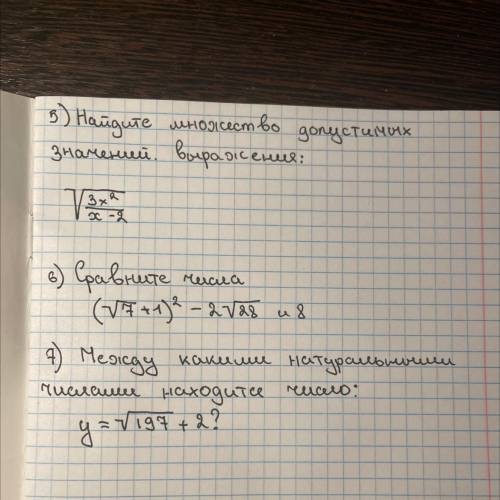 5) Найдите множество допустимых
значений. выражения:
√(3x²/(x-2))
6) Сравните числа
(√7+1)² - 2√28 и 8
7) Между какими натуральными
числами находится число:
y = √197 + 2?